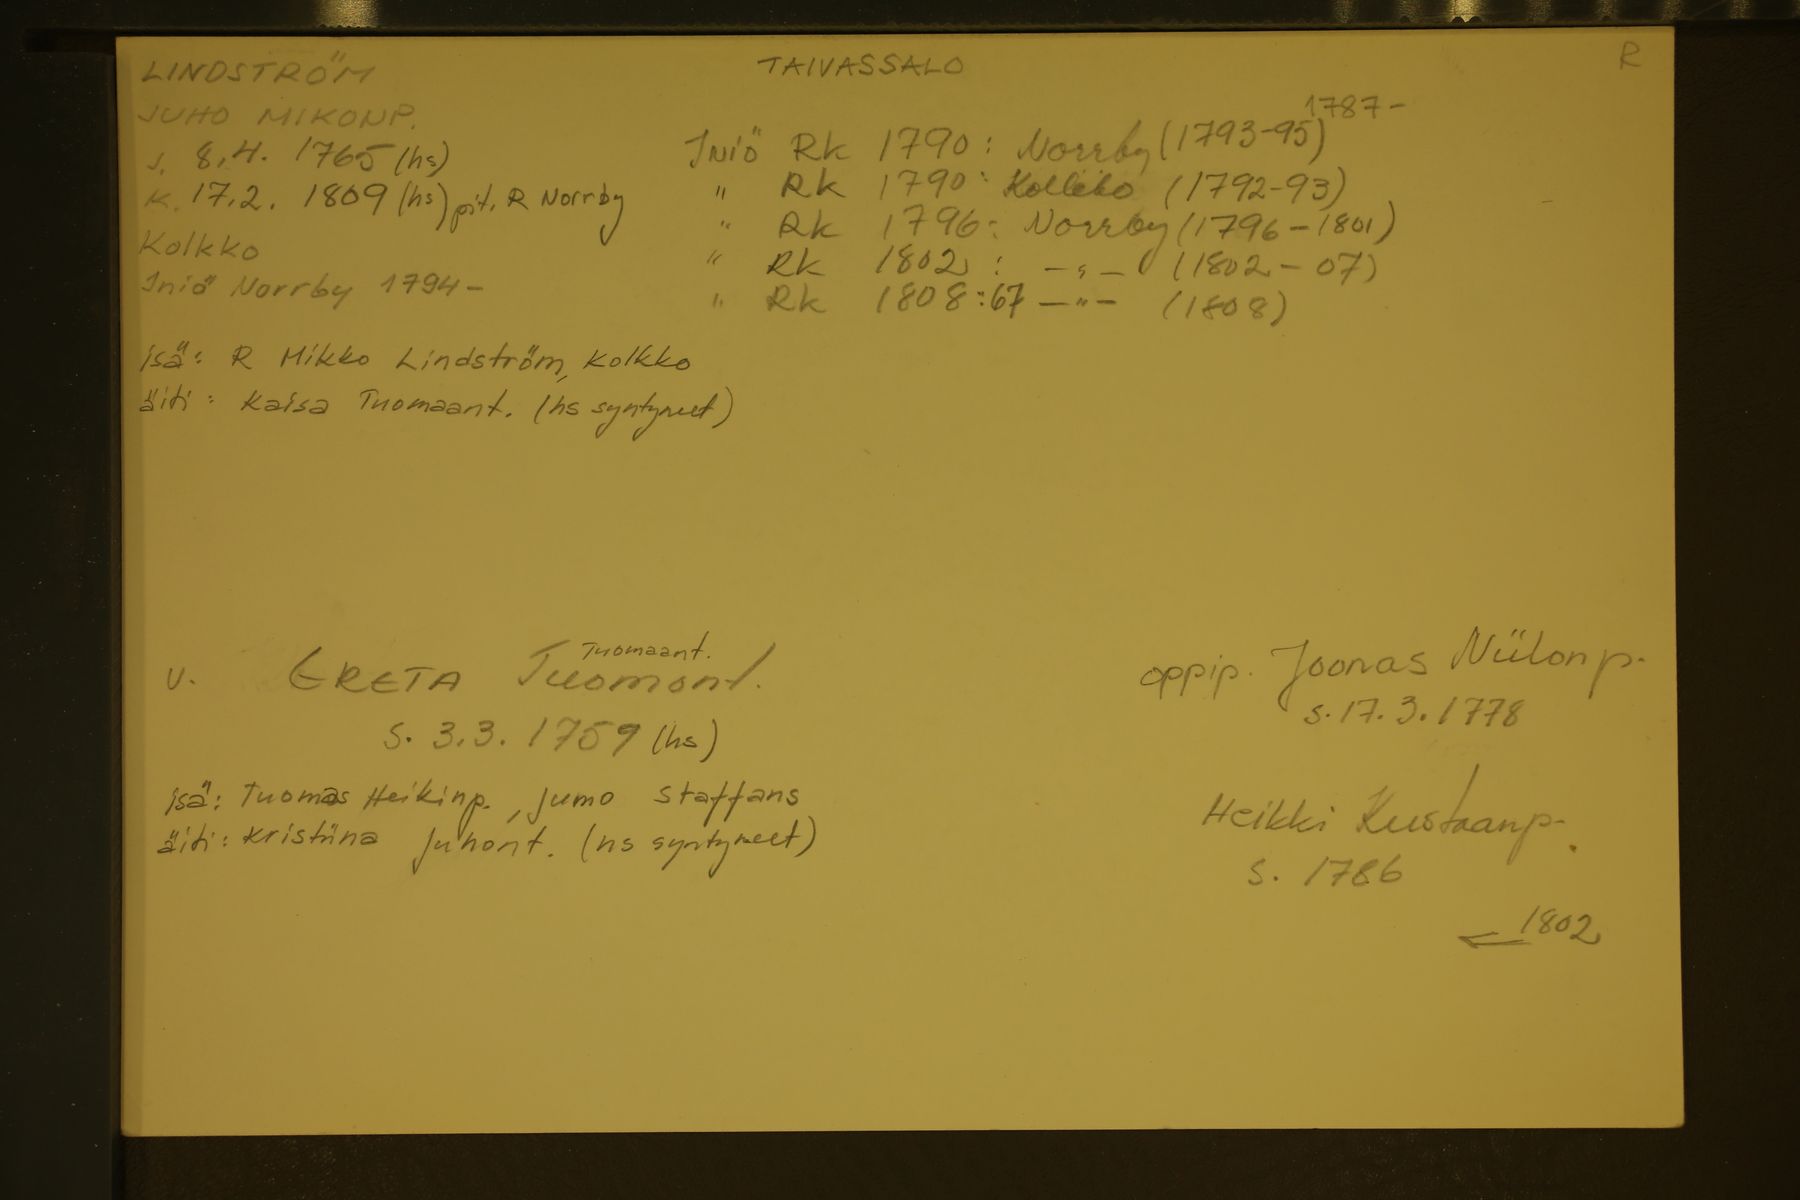 LINDSTRÖM
JUHO MIKONP.
s. 8.4. 1765 (hs)
K. 17.2. 1809 (hs) pit. R Norrby
Kolkko
Iniö Norrby 1794-
isä: R Mikko Lindström, Kolkko
äiti: Kaisa Tuomaant. (hs syntyneet)
TAIVASSALO
R
1787-
Iniö Rk 1790: Norrby (1793-95)
" Rk 1790: Kolkko (1792-93)
" Rk 1796: Norrby (1796-1801)
" Rk 1802: -"- (1802-07)
" Rk 1808:67 -"- (1808)
Tuomaant.
v. GRETA Tuomont.
s. 3.3. 1759 (hs)
isä: Tuomas Heikinp., Jumo Staffans
äiti: Kristiina Juhont. (hs syntyneet)
oppip. Joonas Niilonp.
s. 17.3.1778
Heikki Kustaanp.
s. 1786
← 1802